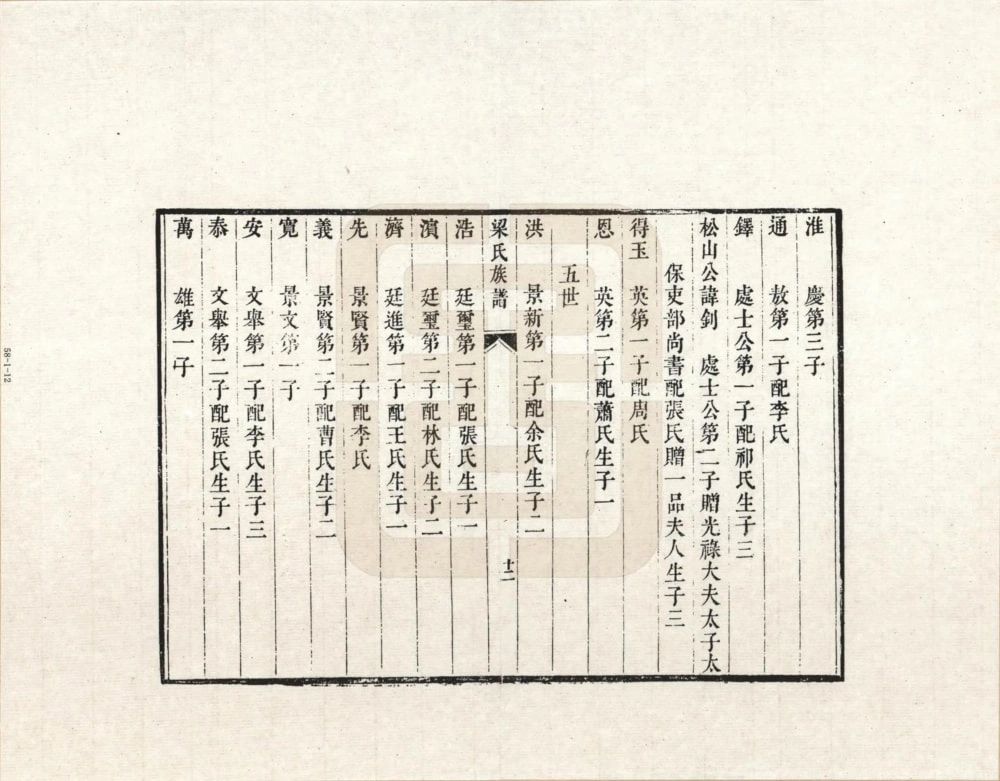 淮　慶第三子
通　敖第一子配李氏
鐸　處士公第一子配祁氏生子三
松山公諱釗　處士公第二子贈光祿大夫太子太
保吏部尚書配張氏贈一品夫人生子三
得玉　英第一子配周氏
恩　英第二子配蕭氏生子一
五世
洪　景新第一子配余氏生子二
梁氏族譜　十二
浩　廷璽第一子配張氏生子一
濱　廷璽第二子配林氏生子二
濟　廷進第一子配王氏生子一
先　景賢第一子配李氏
義　景賢第二子配曹氏生子二
寬　景文第一子
安　文舉第一子配李氏生子三
泰　文舉第二子配張氏生子一
萬　雄第一子
58-1-12